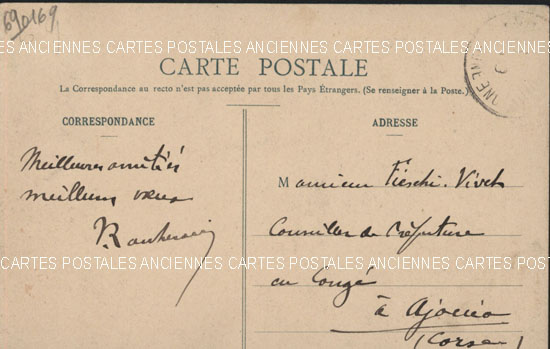 690169
CARTES POSTALES ANCIENNES CARTES POSTALES ANCIENNES CARTES POSTALES ANCIENNES
CARTE POSTALE
La Correspondance au recto n'est pas acceptée par tous les Pays Étrangers. (Se renseigner à la Poste.)
CORRESPONDANCE
Meilleures amitiés
meilleurs vœux
ADRESSE
Monsieur Fieschi-Vivet
Conseiller de Préfecture
en Congé
à Ajaccio
(Corse)
CARTES POSTALES ANCIENNES CARTES POSTALES ANCIENNES CARTES POSTALES ANCIENNES